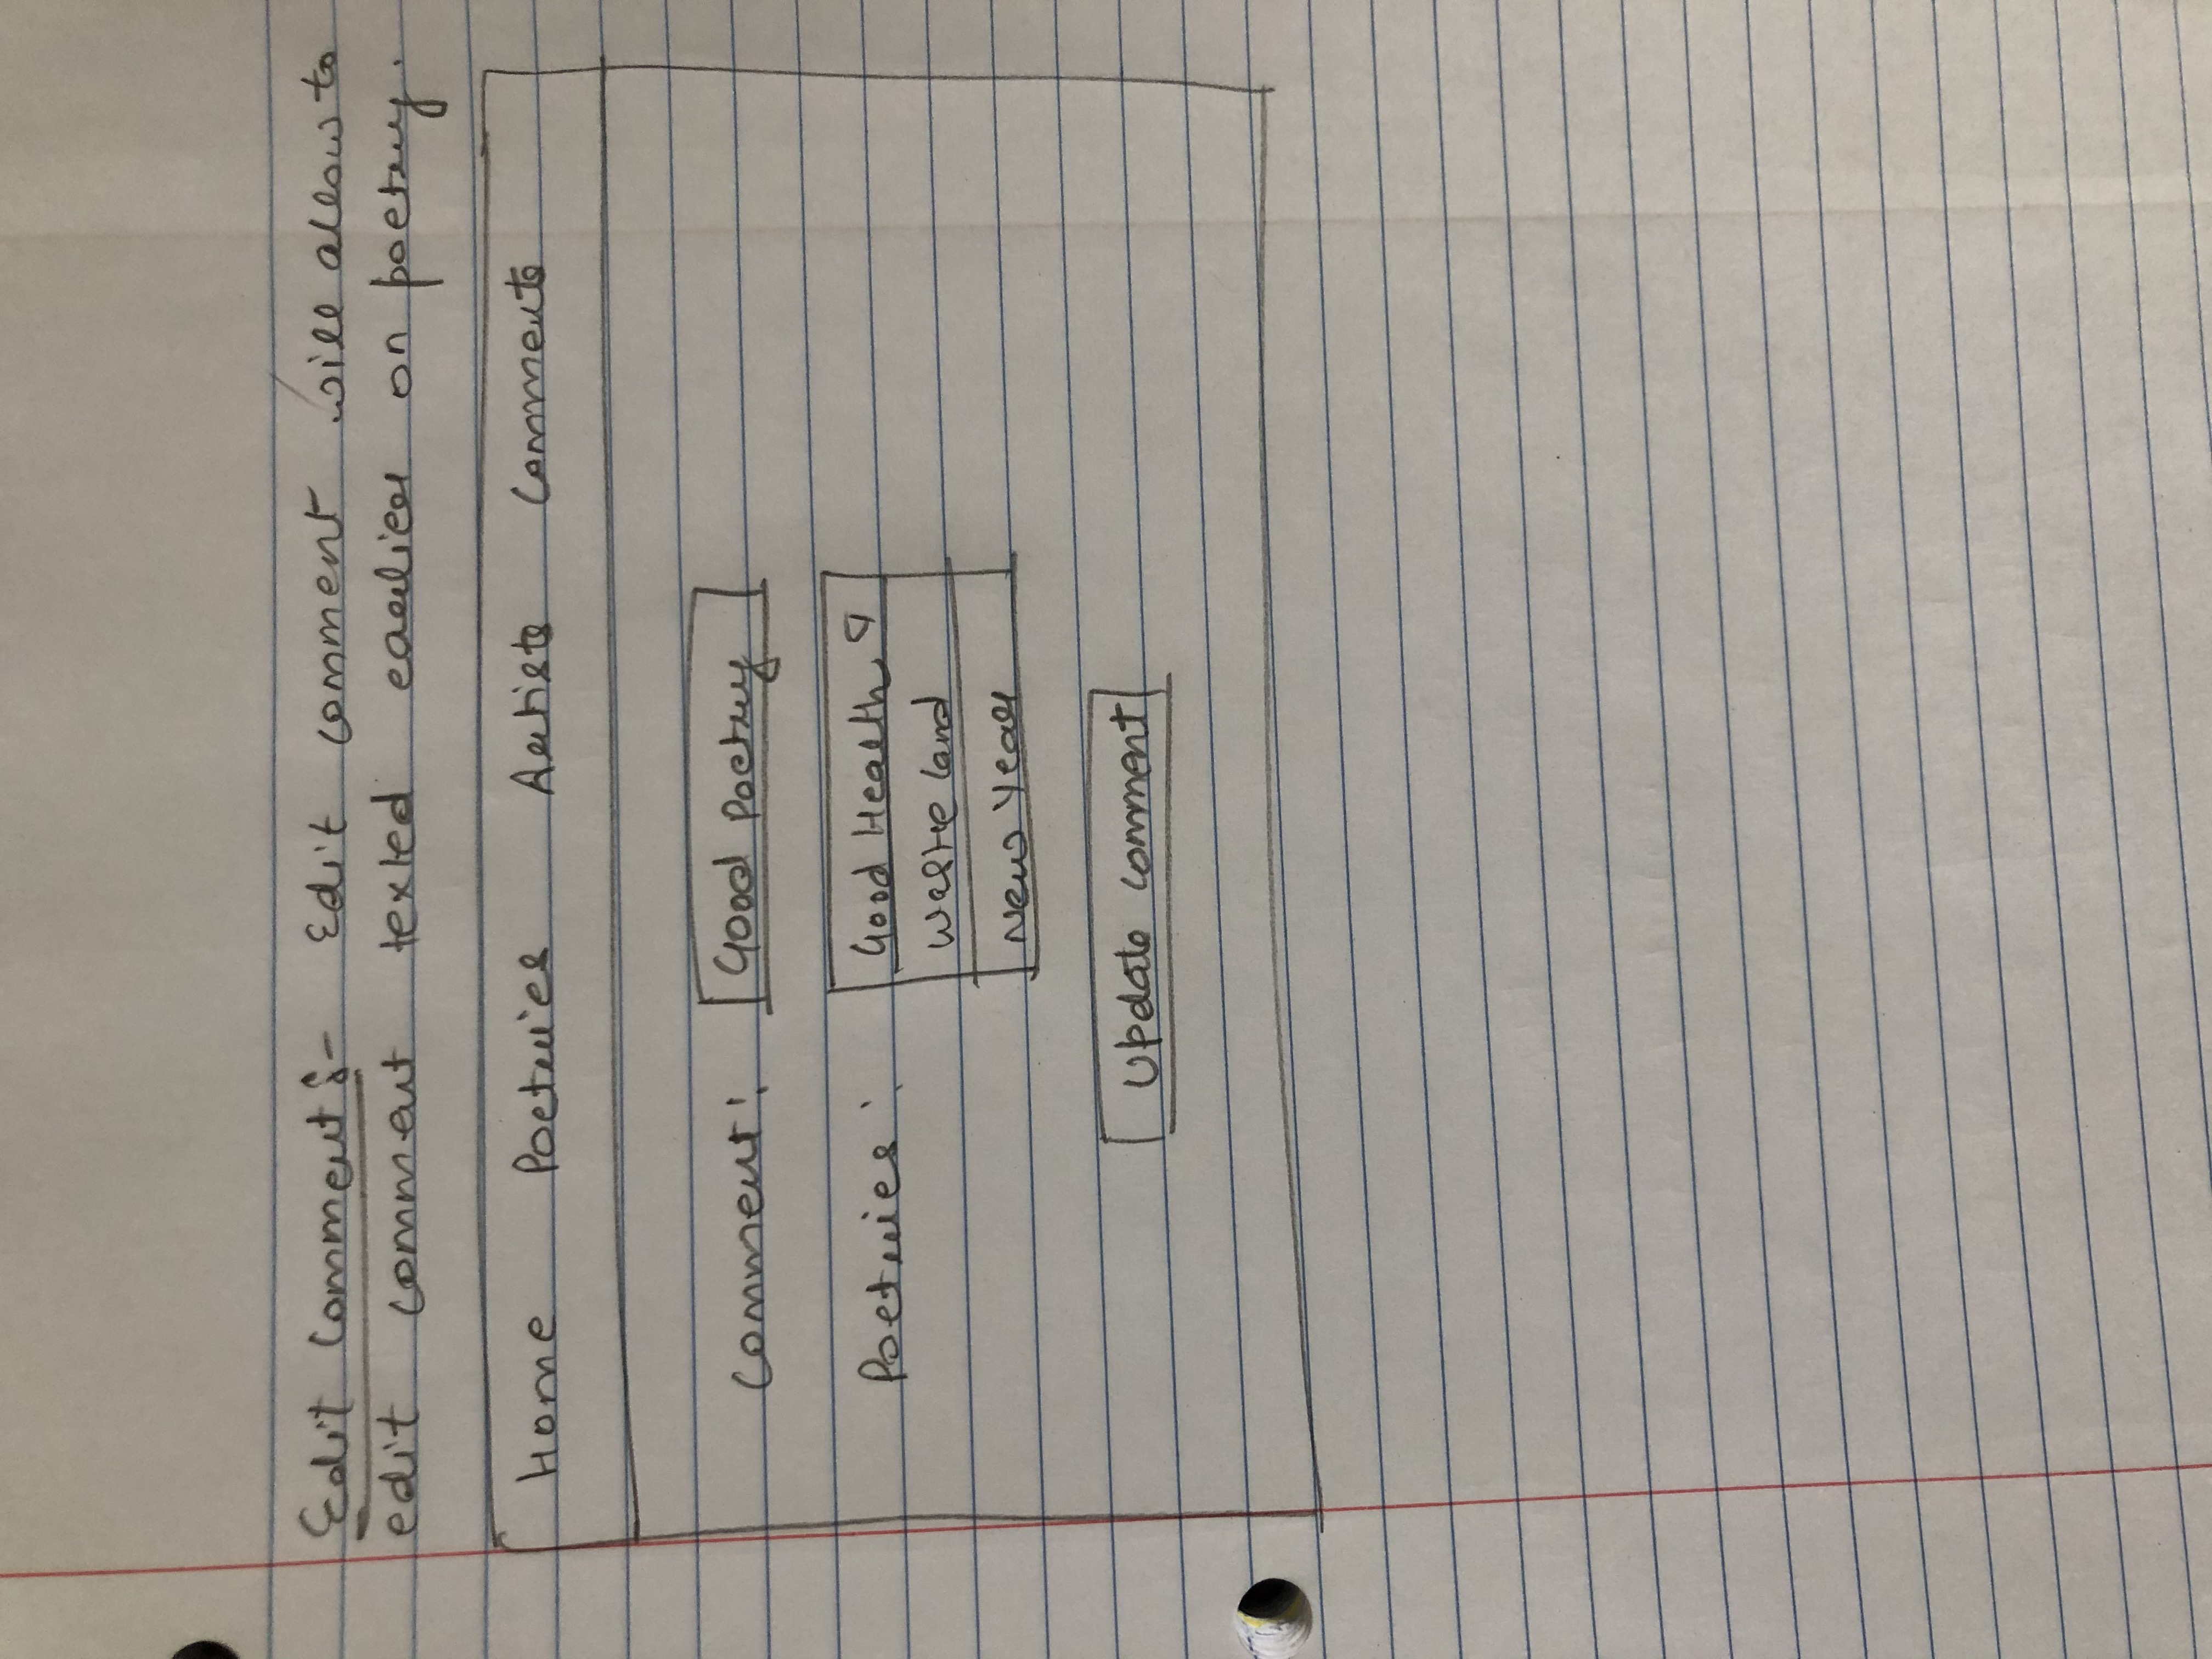 Edit Comment :- Edit comment will allow to
edit comment texted earlier on poetry.
Home Poetries Artists Comments
Comment: Good Poetry
Poetries: Good Health
Waste land
New Year
Update comment